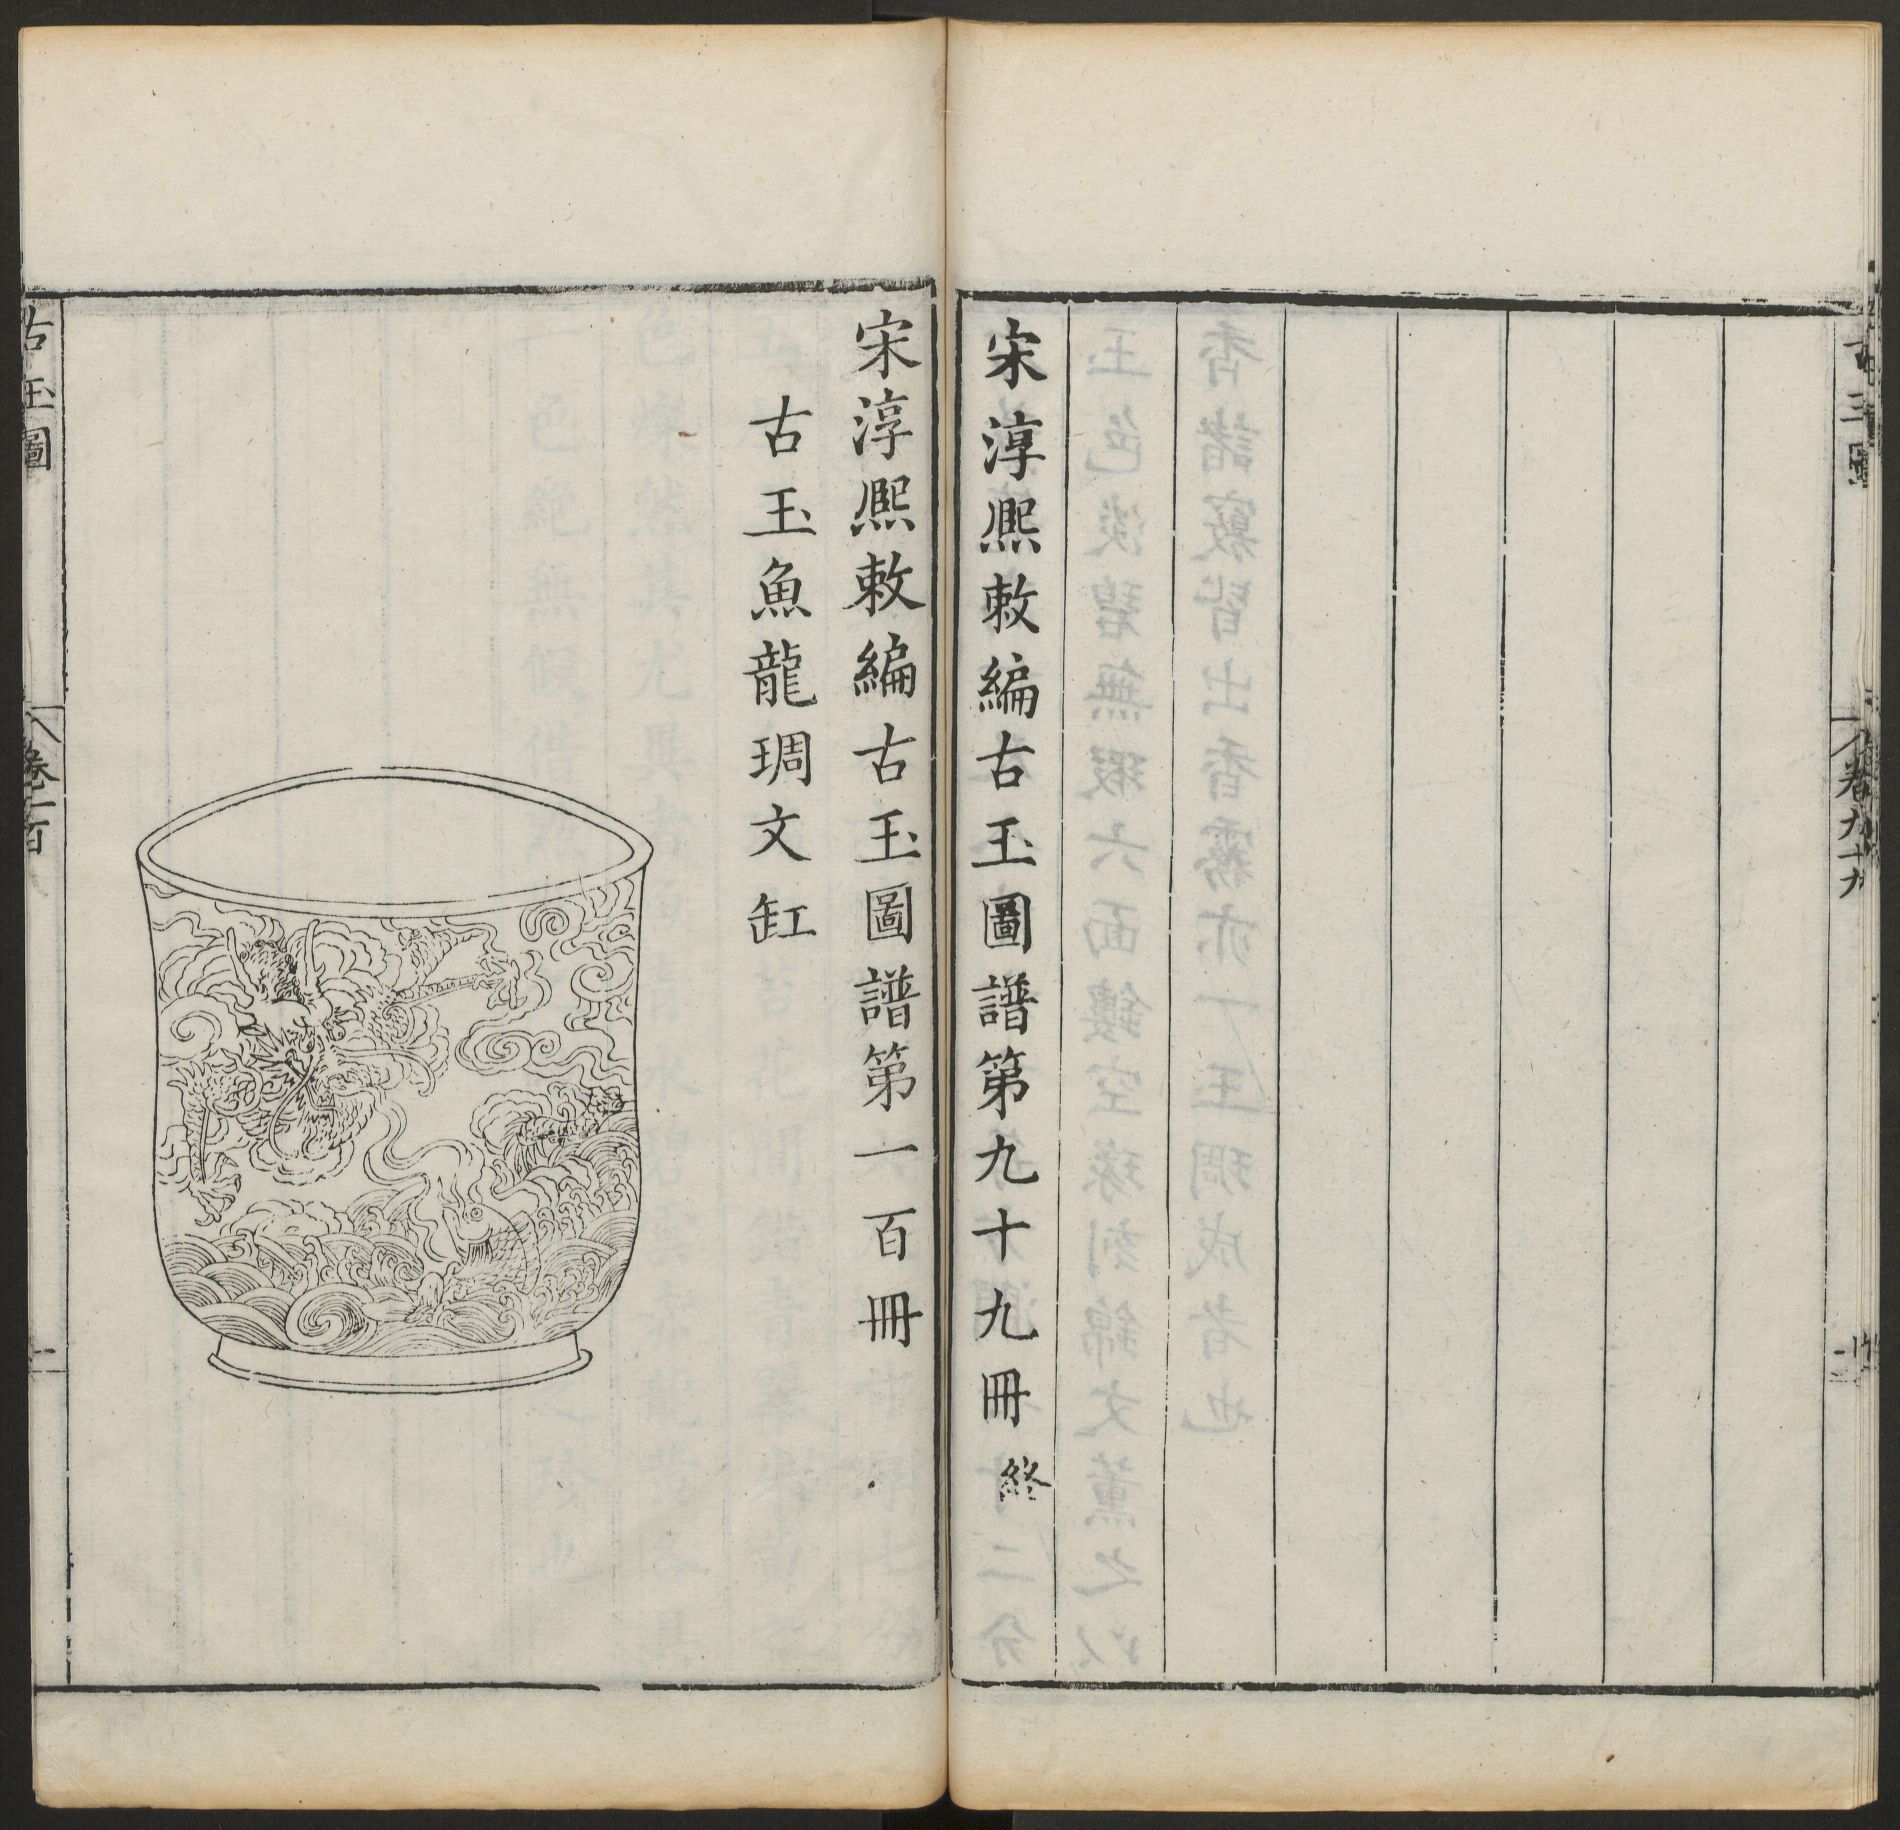 宋淳熙敕編古玉圖譜第九十九冊 終
宋淳熙敕編古玉圖譜第一百冊
古玉魚龍琱文缸
古玉圖
卷一百
一